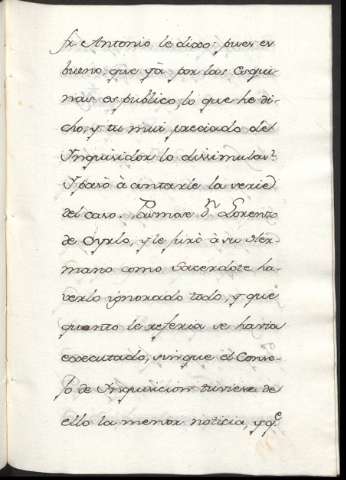 fr Antonio le dixo: pues es
bueno, que ya por las Esqui-
nas es publico, lo que he di-
cho, y tu mui preciado de
Inquisidor lo dissimulas?
Y pasò à contarle la serie
del caso. Pasmose Dn Lorenzo
de oyrlo, y le jurò à su Her-
mano como Sacerdote ha-
verlo ignorado todo, y que
quanto le referia se havia
executado, sin que el Conse-
jo de Inquisicion tuviese de
ello la menor noticia, y qe